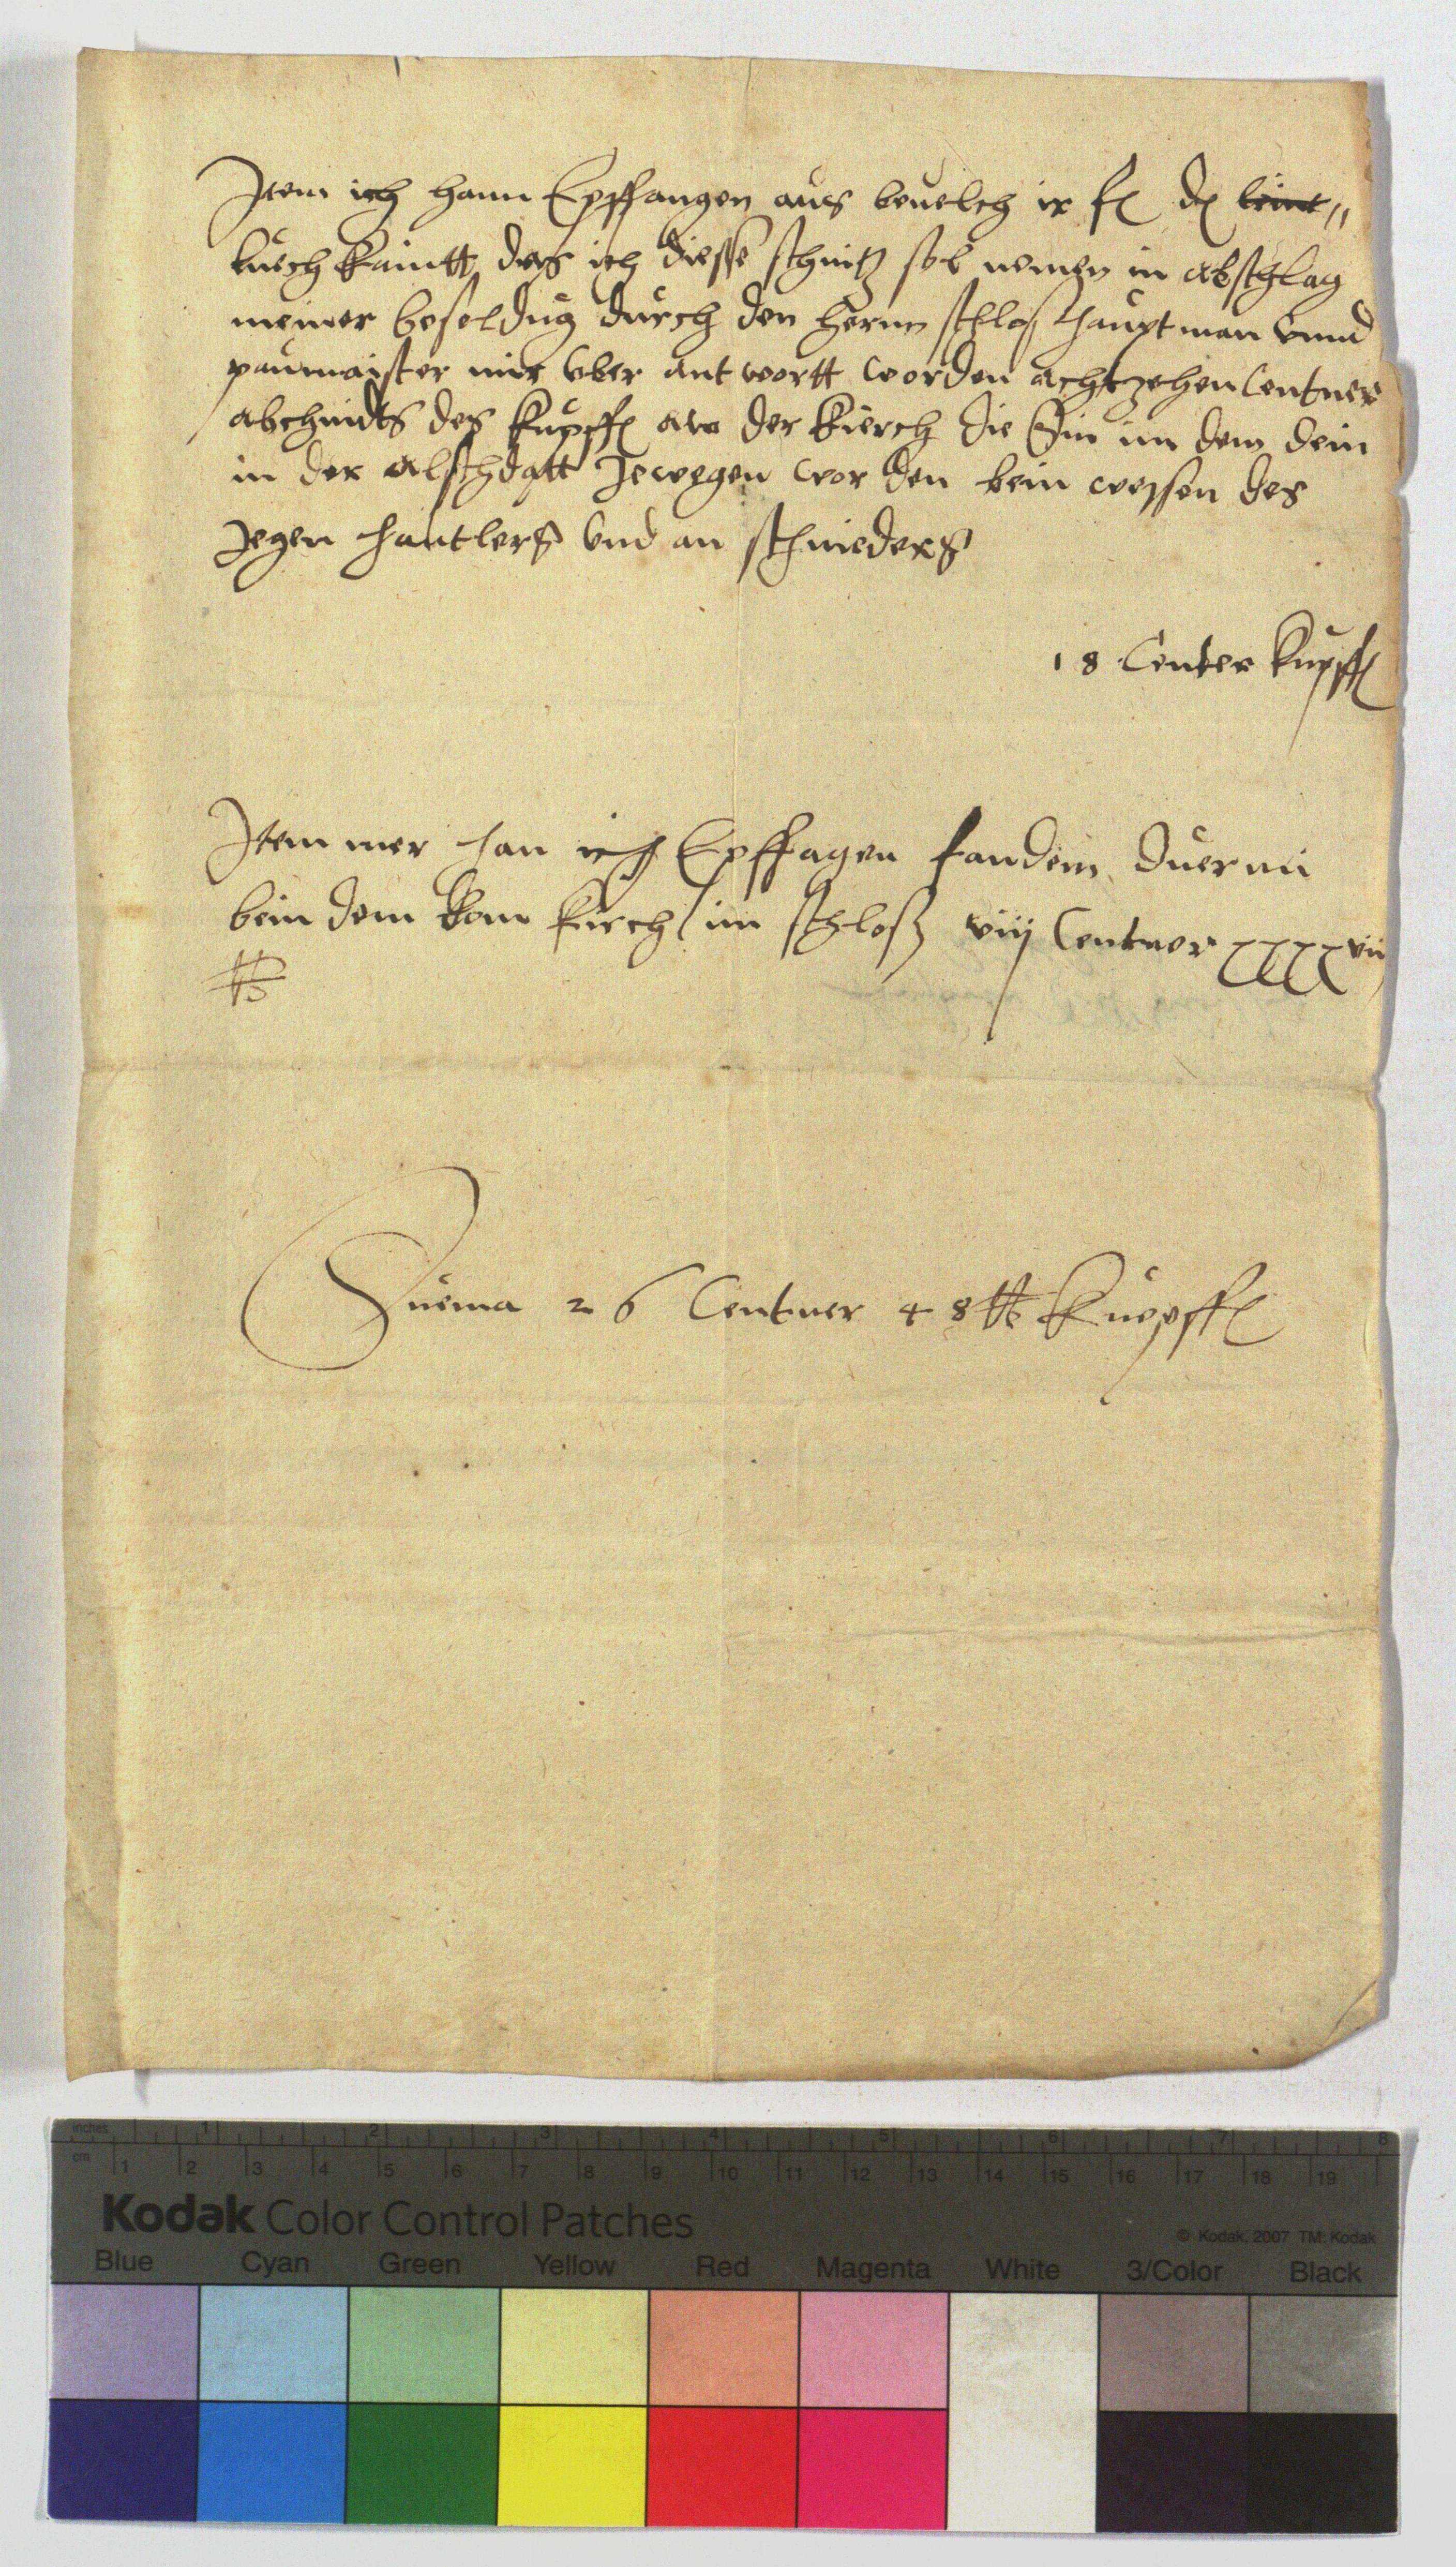 Item ich hann Epffangen aus beuelch ir f d
das ich diesse schnitz sol nemen in abschlag
meiner beseldug durch den herrn schlos hauptman vnnd
paumaister mir vber ant wortt worden achtzehen Centner
abchnidts des kupff der kierch die im dem
in der alschdatt Jewegen wor den bein wessen des
Jegen hantlers vnd an schnieders
18 Center kupff
Item mer han ich Epffagen fandem duernn
bein dem kirch im schlosz viij Centner xxxxvii
℔
Suema 26 Centner 48 ℔ Kuepff
inches 1 2 3 4 5 6 7 8
cm 1 2 3 4 5 6 7 8 9 10 11 12 13 14 15 16 17 18 19
Kodak Color Control Patches
© Kodak, 2007 TM: Kodak
Blue Cyan Green Yellow Red Magenta White 3/Color Black